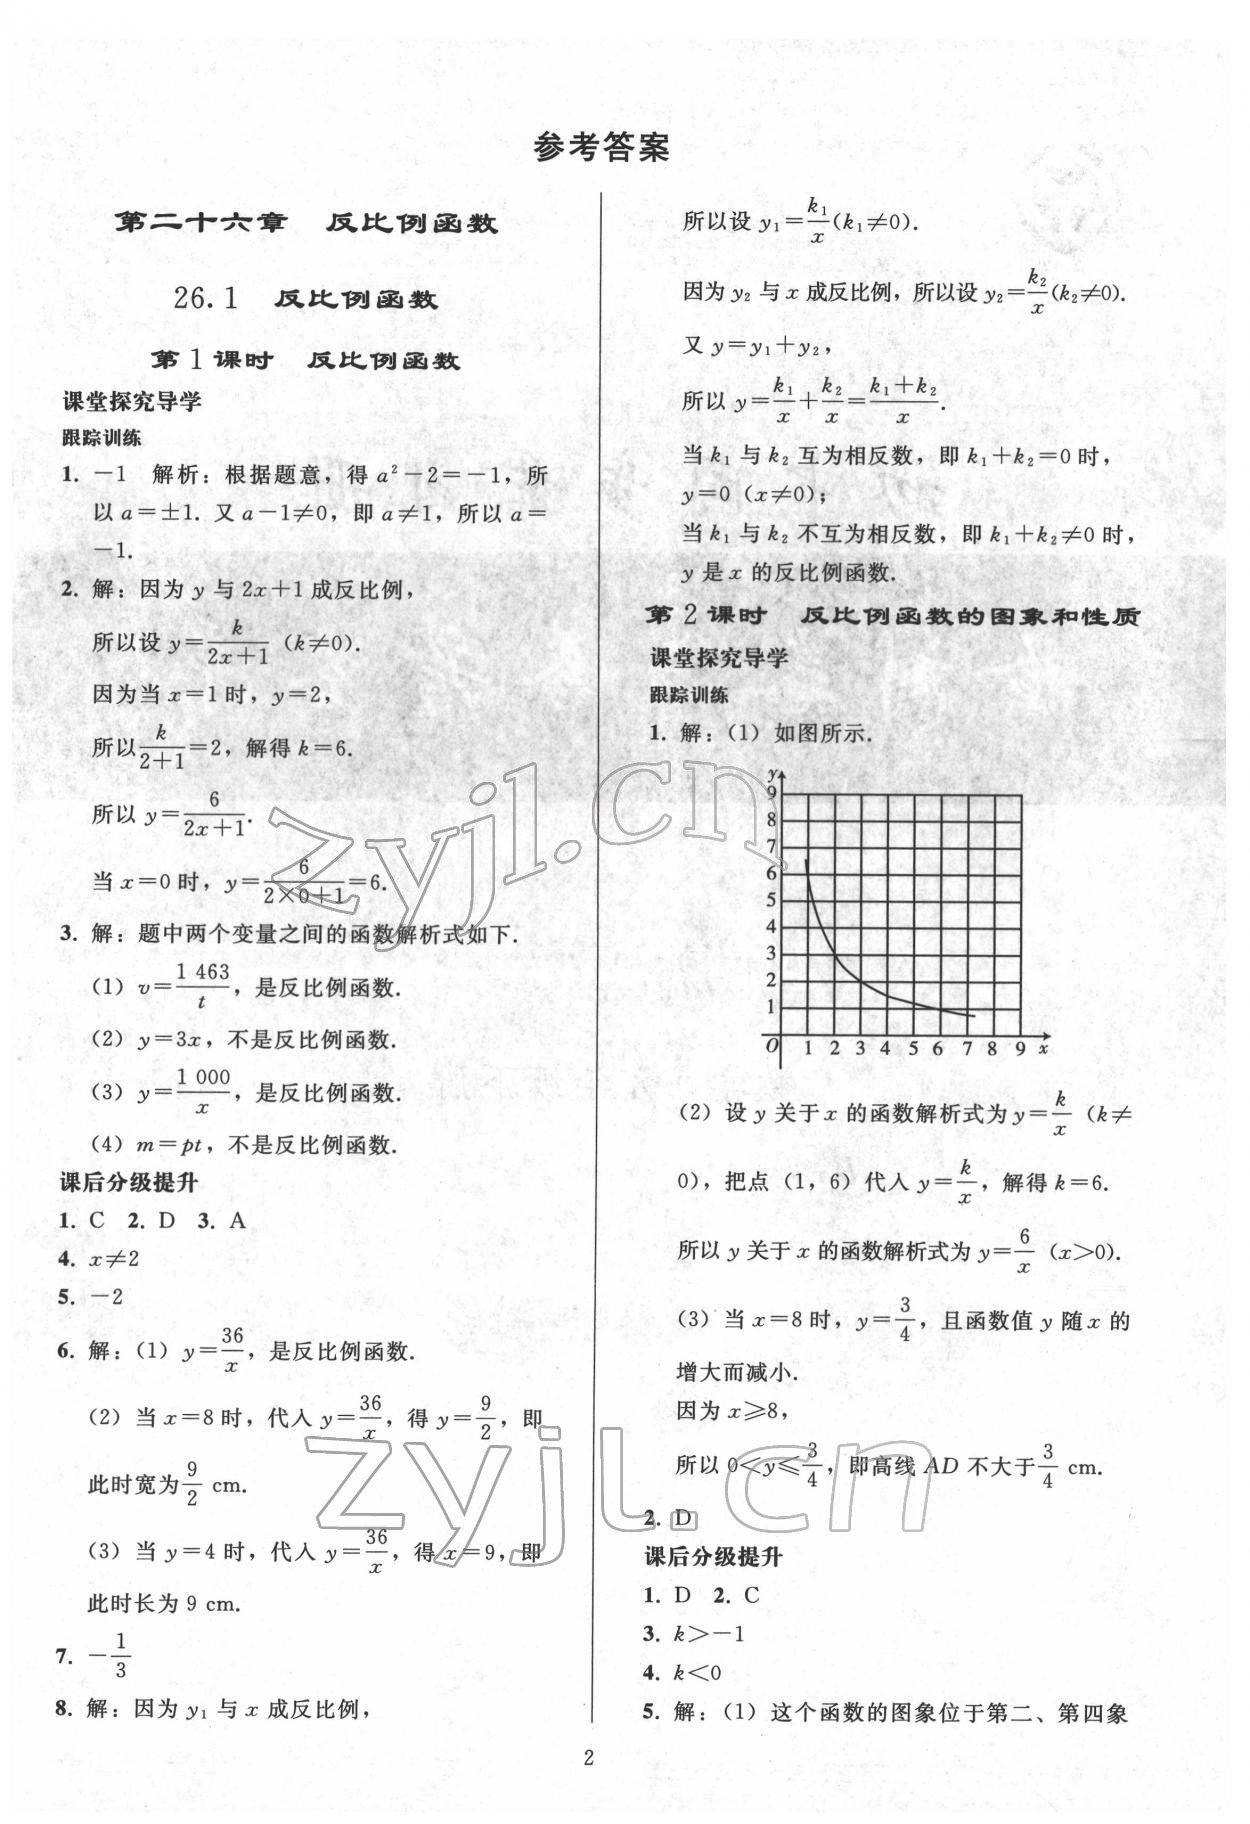 参考答案
第二十六章 反比例函数
26.1 反比例函数
第1课时 反比例函数
课堂探究导学
跟踪训练
1. －1 解析：根据题意，得 a²－2＝－1，所
以 a＝±1. 又 a－1≠0，即 a≠1，所以 a＝
－1.
2. 解：因为 y 与 2x＋1 成反比例，
所以设 y＝k/(2x＋1)（k≠0）.
因为当 x＝1 时，y＝2，
所以 k/(2＋1)＝2，解得 k＝6.
所以 y＝6/(2x＋1).
当 x＝0 时，y＝6/(2×0＋1)＝6.
3. 解：题中两个变量之间的函数解析式如下.
(1) v＝1 463/t，是反比例函数.
(2) y＝3x，不是反比例函数.
(3) y＝1 000/x，是反比例函数.
(4) m＝pt，不是反比例函数.
课后分级提升
1. C 2. D 3. A
4. x≠2
5. －2
6. 解：(1) y＝36/x，是反比例函数.
(2) 当 x＝8 时，代入 y＝36/x，得 y＝9/2，即
此时宽为 9/2 cm.
(3) 当 y＝4 时，代入 y＝36/x，得 x＝9，即
此时长为 9 cm.
7. －1/3
8. 解：因为 y₁ 与 x 成反比例，
所以设 y₁＝k₁/x(k₁≠0).
因为 y₂ 与 x 成反比例，所以设 y₂＝k₂/x(k₂≠0).
又 y＝y₁＋y₂，
所以 y＝k₁/x＋k₂/x＝(k₁＋k₂)/x.
当 k₁ 与 k₂ 互为相反数，即 k₁＋k₂＝0 时，
y＝0（x≠0）；
当 k₁ 与 k₂ 不互为相反数，即 k₁＋k₂≠0 时，
y 是 x 的反比例函数.
第2课时 反比例函数的图象和性质
课堂探究导学
跟踪训练
1. 解：(1) 如图所示.
y
9
8
7
6
5
4
3
2
1
O 1 2 3 4 5 6 7 8 9 x
(2) 设 y 关于 x 的函数解析式为 y＝k/x（k≠
0），把点（1，6）代入 y＝k/x，解得 k＝6.
所以 y 关于 x 的函数解析式为 y＝6/x（x＞0）.
(3) 当 x＝8 时，y＝3/4，且函数值 y 随 x 的
增大而减小.
因为 x≥8，
所以 0＜y≤3/4，即高线 AD 不大于 3/4 cm.
2. D
课后分级提升
1. D 2. C
3. k＞－1
4. k＜0
5. 解：(1) 这个函数的图象位于第二、第四象
2
zyjl.cn
zyjl.cn